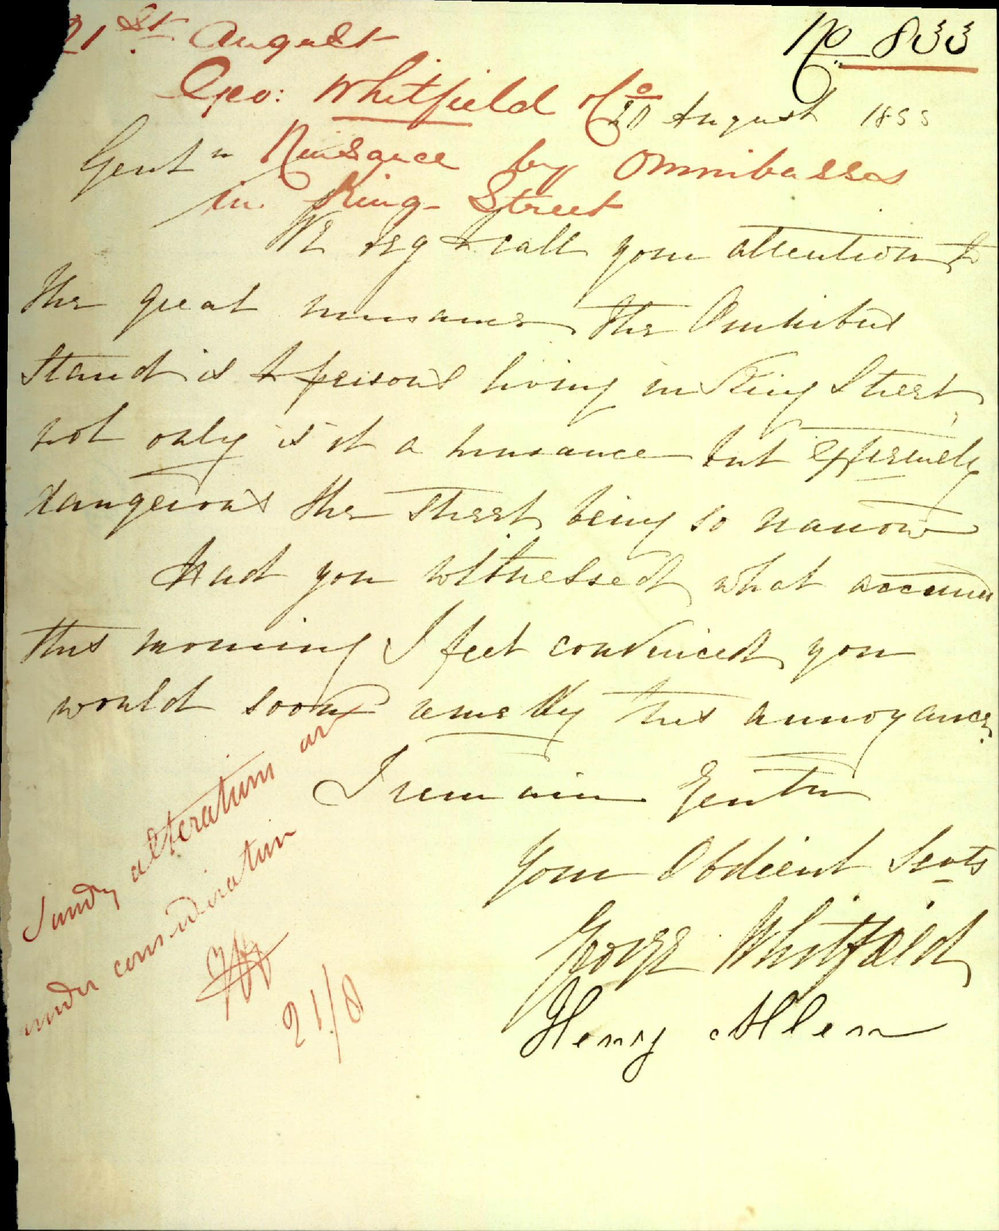 21st August
No 833
Geo: Whitfield & Co
20 August 1855
Gentn
Nuisance by Omnibusses
in King Street
We beg to call your attention to
the great nuisance the Omnibus
Stand is to persons living in King Street
not only is it a nuisance but extremely
dangerous the street being so narrow
Had you witnessed what occurred
this morning I feel convinced you
would soon remedy this annoyance.
I remain Gentn
Your Obdient Servts
George Whitfield
Henry Allen
Sundry alterations are
under consideration
21/8